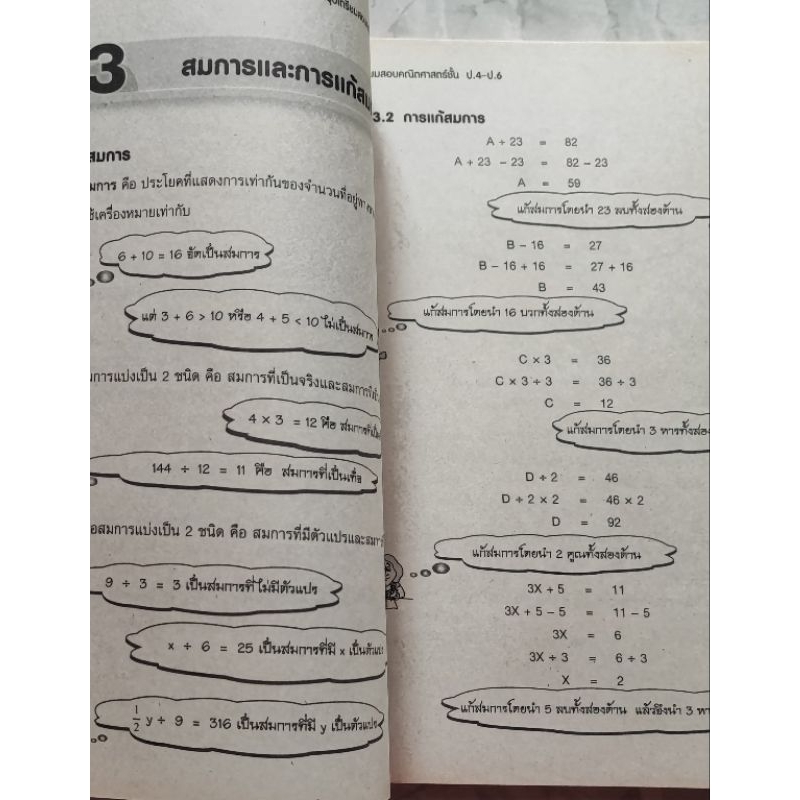 3 สมการและการแก้สม
สมการ
สมการ คือ ประโยคที่แสดงการเท่ากันของจำนวนที่อยู่
ใช้เครื่องหมายเท่ากับ
6 + 10 = 16 จัดเป็นสมการ
แต่ 3 + 6 > 10 หรือ 4 + 5 < 10 ไม่เป็นสมการ
มการแบ่งเป็น 2 ชนิด คือ สมการที่เป็นจริงและสมการที่
4 × 3 = 12 คือ สมการที่เป็น
144 ÷ 12 = 11 คือ สมการที่เป็นเท็จ
อสมการแบ่งเป็น 2 ชนิด คือ สมการที่มีตัวแปรและสมการ
9 ÷ 3 = 3 เป็นสมการที่ไม่มีตัวแปร
x ÷ 6 = 25 เป็นสมการที่มี x เป็นตัวแปร
1/2 y + 9 = 316 เป็นสมการที่มี y เป็นตัวแปร
มสอบคณิตศาสตร์ชั้น ป.4-ป.6
3.2 การแก้สมการ
A + 23 = 82
A + 23 – 23 = 82 – 23
A = 59
แก้สมการโดยนำ 23 ลบทั้งสองด้าน
B – 16 = 27
B – 16 + 16 = 27 + 16
B = 43
แก้สมการโดยนำ 16 บวกทั้งสองด้าน
C × 3 = 36
C × 3 ÷ 3 = 36 ÷ 3
C = 12
แก้สมการโดยนำ 3 หารทั้งสอง
D ÷ 2 = 46
D ÷ 2 × 2 = 46 × 2
D = 92
แก้สมการโดยนำ 2 คูณทั้งสองด้าน
3X + 5 = 11
3X + 5 – 5 = 11 – 5
3X = 6
3X ÷ 3 = 6 ÷ 3
X = 2
แก้สมการโดยนำ 5 ลบทั้งสองด้าน แล้วจึงนำ 3 หา